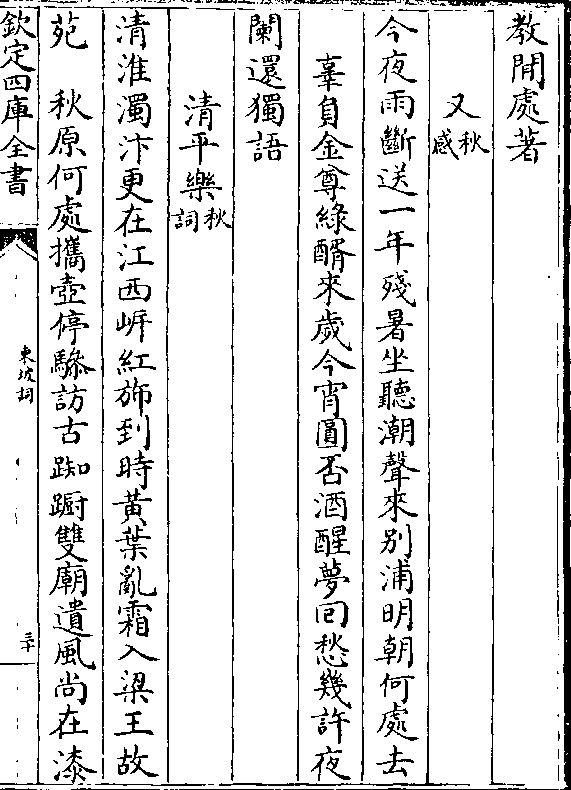 教閒處著
又秋感
今夜雨斷送一年殘暑坐聽潮聲來别浦明朝何處去
辜負金尊綠醑來歲今宵圓否酒醒夢回愁幾許夜
闌還獨語
清平樂秋詞
清淮濁汴更在江西岸紅斾到時黃葉亂霜入梁王故
苑　秋原何處攜壺停驂訪古踟蹰雙廟遺風尚在漆
欽定四庫全書
東坡詞
三十